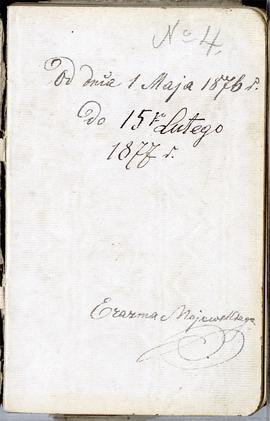 No 4.
Od dnia 1 Maja 1876 r.
Do 15go Lutego
1877 r.
Erazma Majewskiego